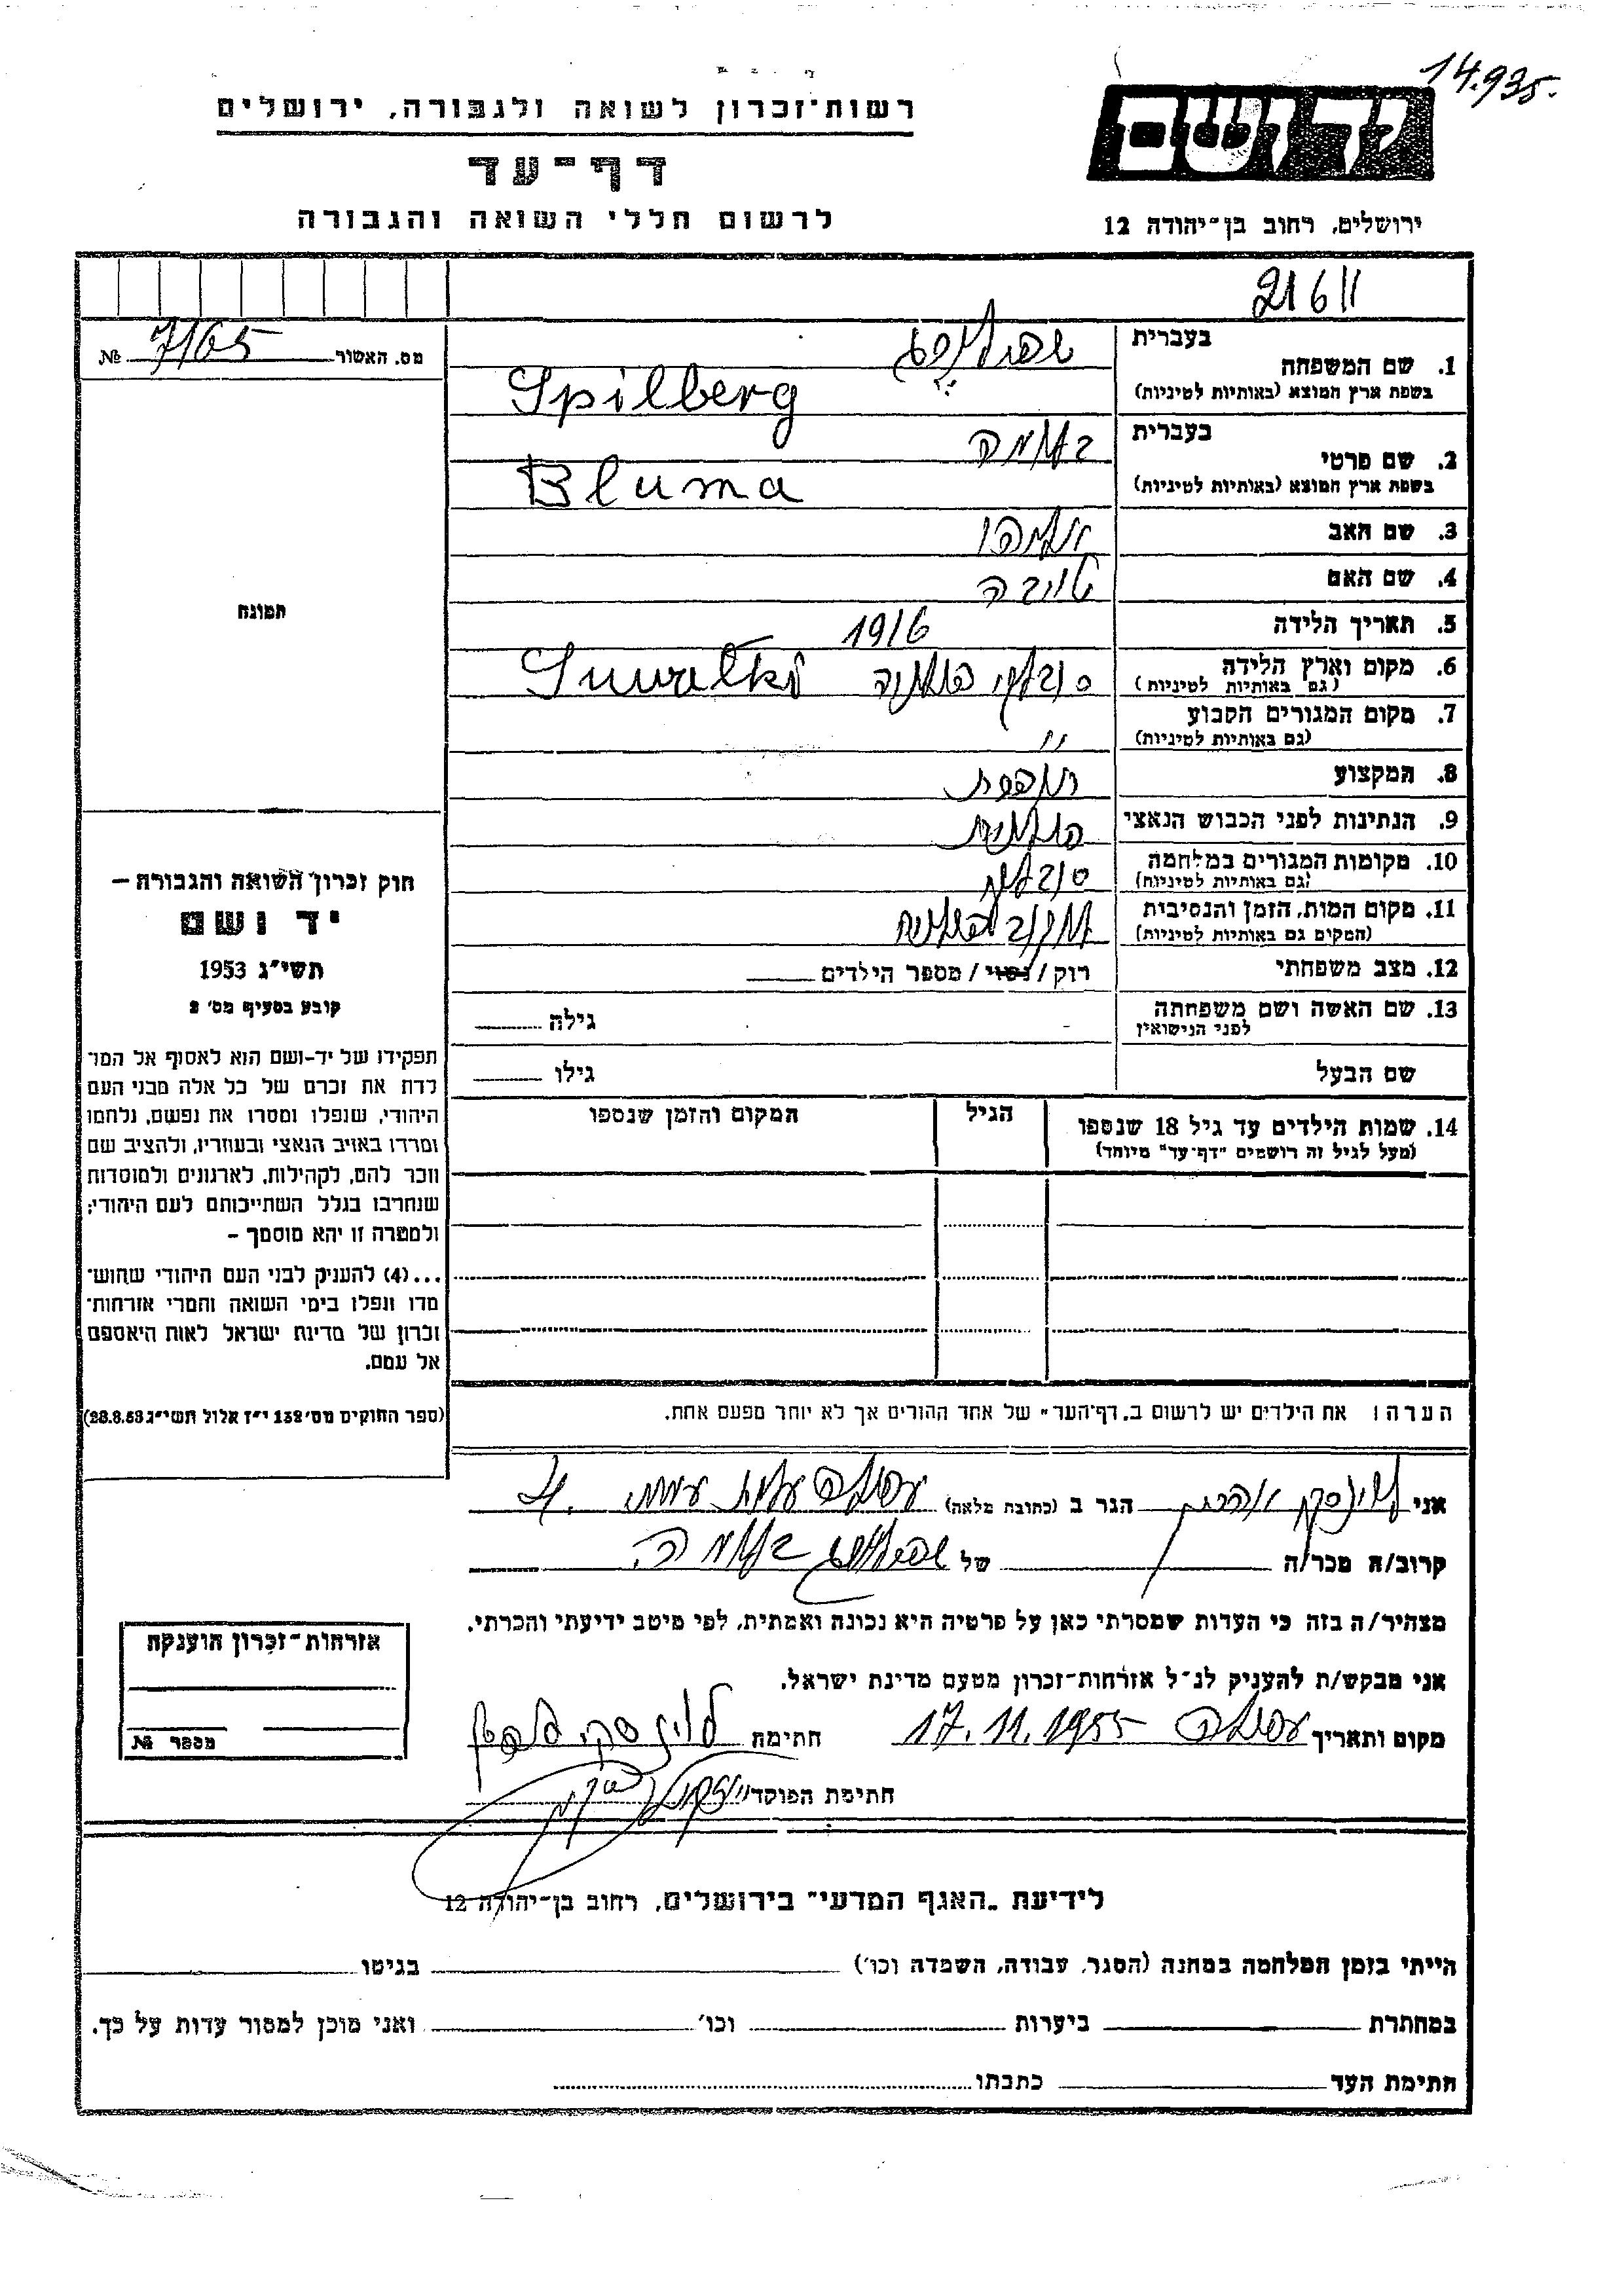 14.935.
רשות-זכרון לשואה ולגבורה, ירושלים
דף-עד
לרשום חללי השואה והגבורה
יד ושם
ירושלים, רחוב בן-יהודה 12
21611
מס. האשור 7165 №
1. שם המשפחה
בעברית שפילברג
בשפת ארץ המוצא (באותיות לטיניות) Spilberg
2. שם פרטי
בעברית בלומה
בשפת ארץ המוצא (באותיות לטיניות) Bluma
3. שם האב
4. שם האם טויבה
5. תאריך הלידה 1916
6. מקום וארץ הלידה סובלקי פולניה Suwałki
(גם באותיות לטיניות)
7. מקום המגורים הקבוע "
(גם באותיות לטיניות)
8. המקצוע תופרת
9. הנתינות לפני הכבוש הנאצי פולנית
10. מקומות המגורים במלחמה סובלקי
(גם באותיות לטיניות)
11. מקום המות, הזמן והנסיבות
(המקום גם באותיות לטיניות)
12. מצב משפחתי רוק / נשוי / מספר הילדים
13. שם האשה ושם משפחתה גילה
לפני הנישואין
שם הבעל גילו
14. שמות הילדים עד גיל 18 שנספו הגיל המקום והזמן שנספו
(מעל לגיל זה רושמים "דף-עד" מיוחד)
הערה: את הילדים יש לרשום ב"דף-העד" של אחד ההורים אך לא יותר מפעם אחת.
תמונה
חוק זכרון השואה והגבורה –
יד ושם
תשי"ג 1953
קובע בסעיף מס' 2
תפקידו של יד-ושם הוא לאסוף אל המו־
לדת את זכרם של כל אלה מבני העם
היהודי, שנפלו ומסרו את נפשם, נלחמו
ומרדו באויב הנאצי ובעוזריו, ולהציב שם
וזכר להם, לקהילות, לארגונים ולמוסדות
שנחרבו בגלל השתייכותם לעם היהודי;
ולמטרה זו יהא מוסמך –
...(4) להעניק לבני העם היהודי שהוש־
מדו ונפלו בימי השואה והמרי אזרחות־
זכרון של מדינת ישראל לאות היאספם
אל עמם.
(ספר החוקים מס' 132 י"ז אלול תשי"ג 28.8.53)
אני הגר ב (כתובת מלאה) עפולה
קרוב/ה מכר/ה של שפילברג בלומה.
מצהיר/ה בזה כי העדות שמסרתי כאן על פרטיה היא נכונה ואמתית, לפי מיטב ידיעתי והכרתי.
אני מבקש/ת להעניק לנ"ל אזרחות-זכרון מטעם מדינת ישראל.
מקום ותאריך עפולה 17.11.1955 חתימת
חתימת הפוקד
אזרחות-זכרון הוענקה
מספר №
לידיעת "האגף המדעי" בירושלים, רחוב בן-יהודה 12
הייתי בזמן המלחמה במחנה (הסגר, עבודה, השמדה וכו') בגיטו
במחתרת ביערות וכו' ואני מוכן למסור עדות על כך.
חתימת העד כתבתו